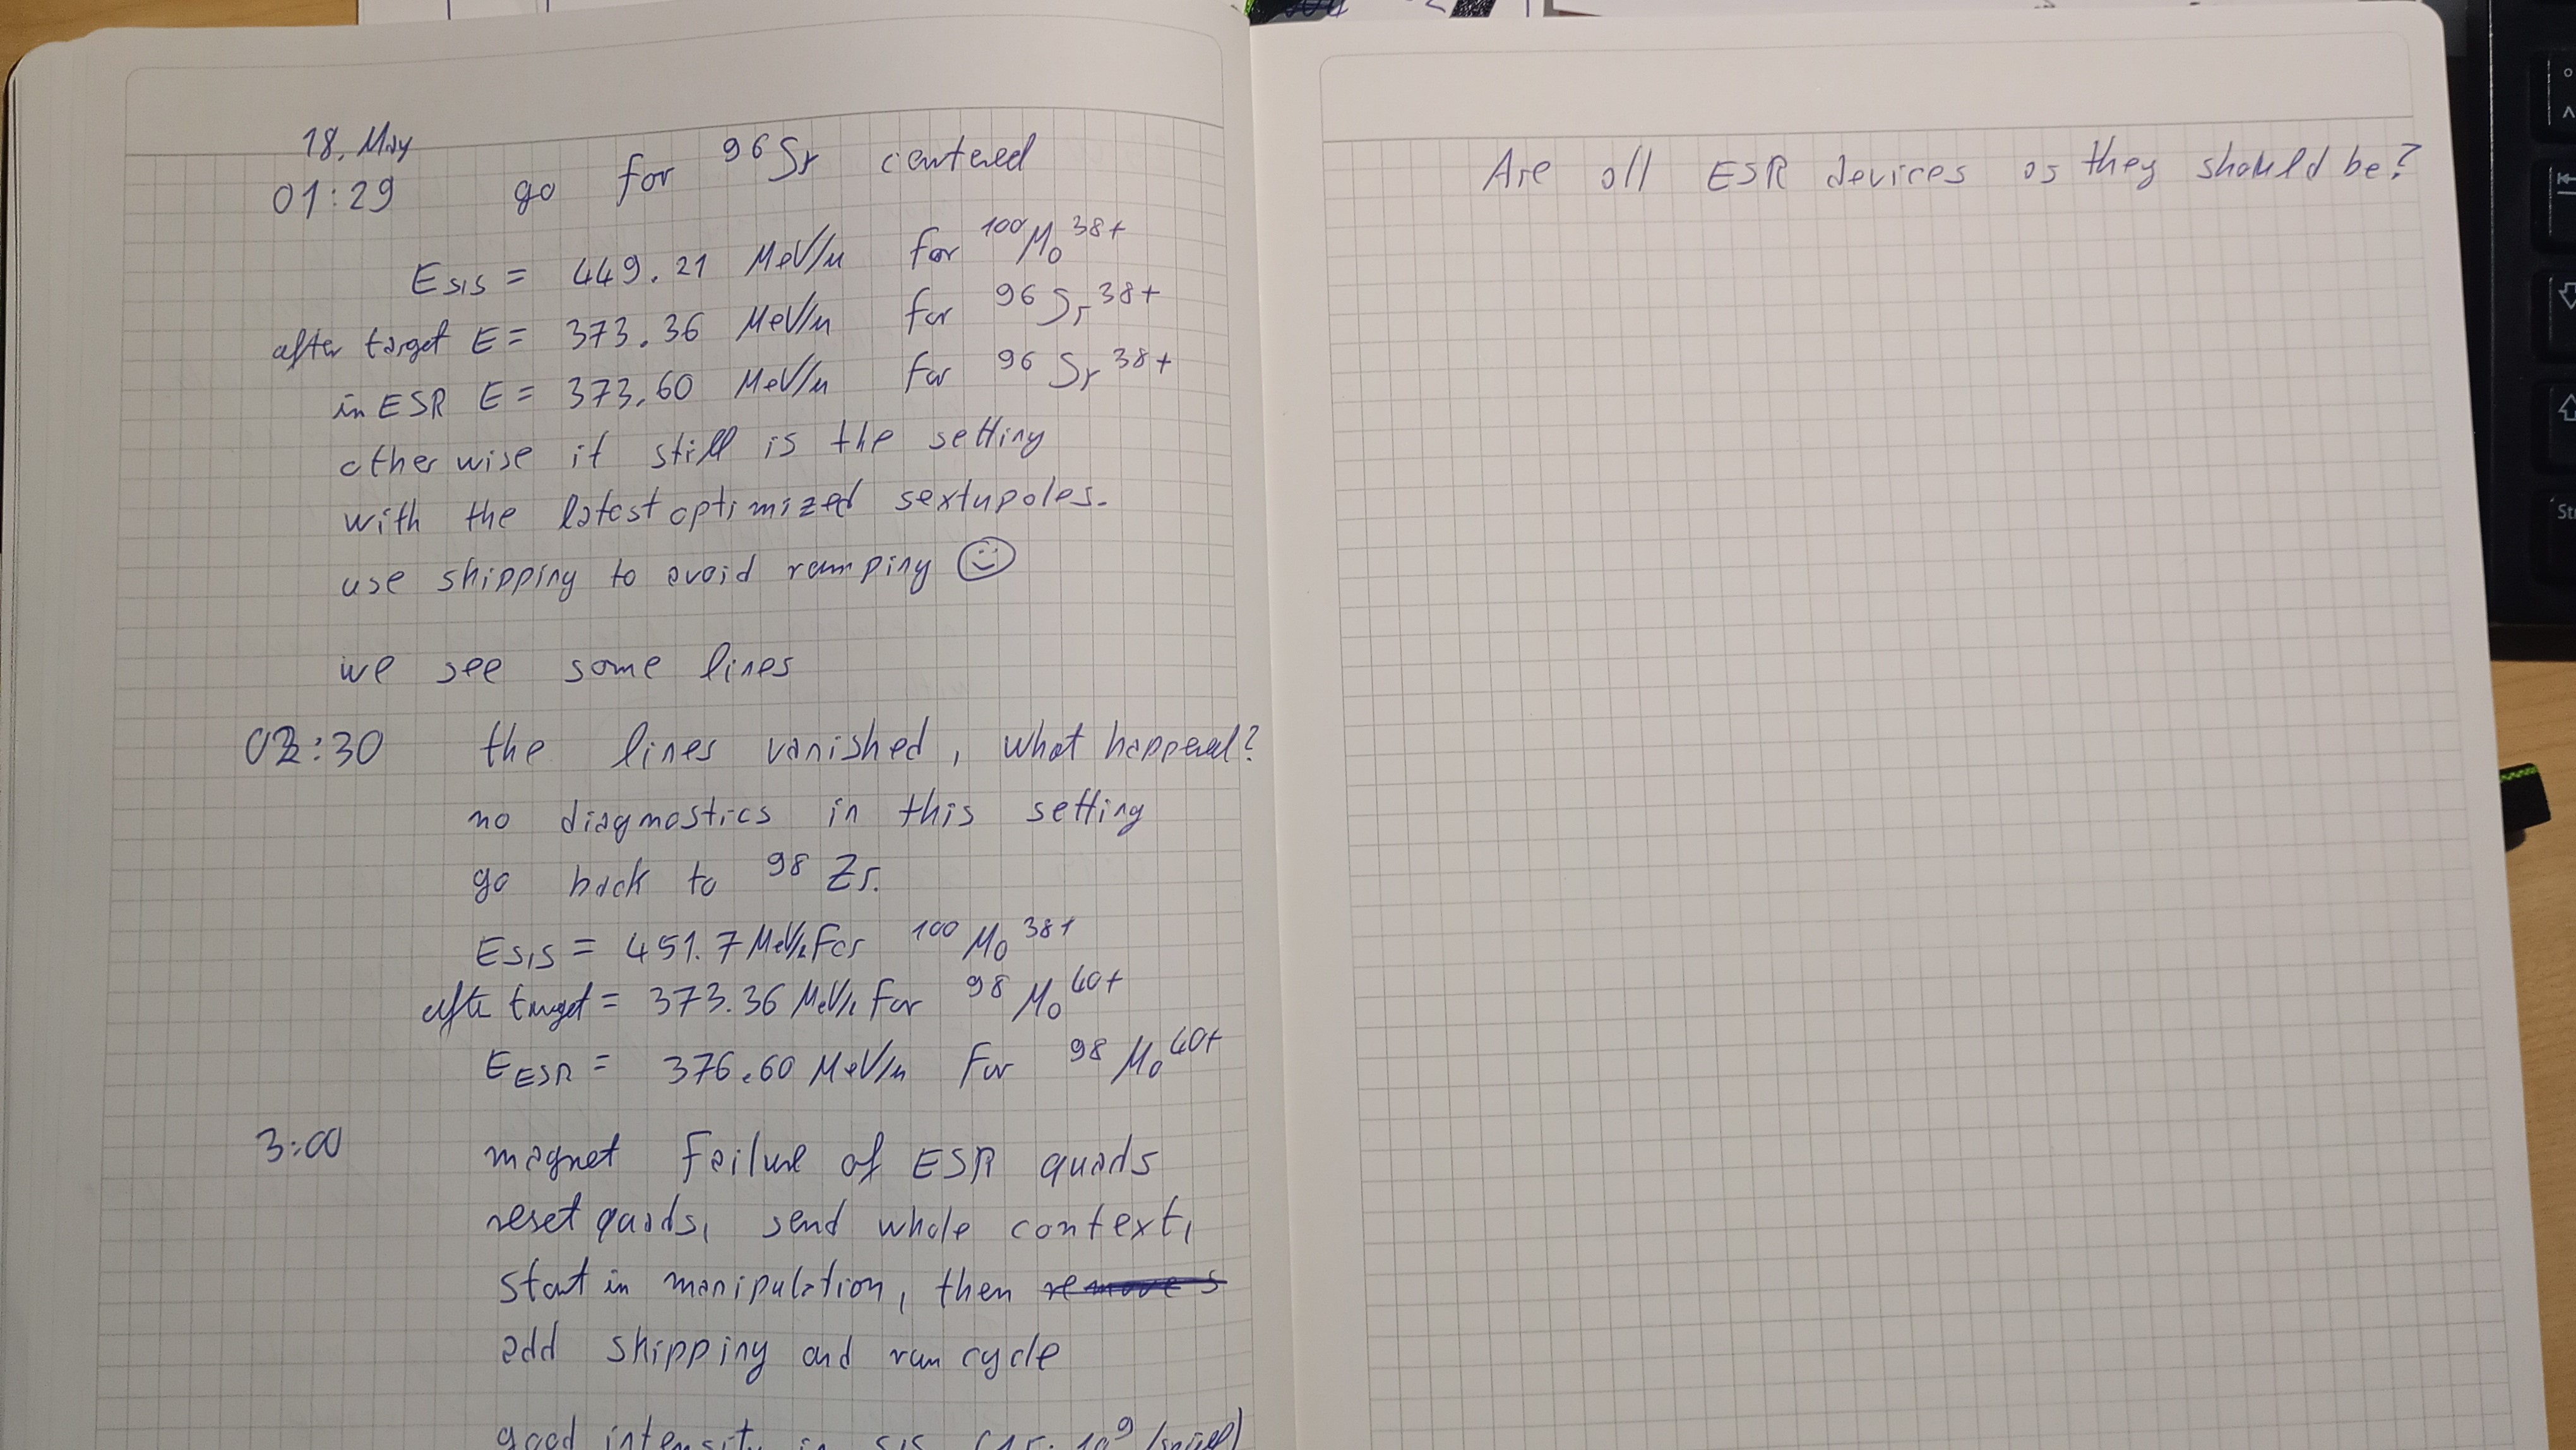 18. May
01:29 go for ⁹⁶Sr centered
E SIS = 449.21 MeV/u for ¹⁰⁰Mo³⁸⁺
after target E = 373.36 MeV/u for ⁹⁶Sr³⁸⁺
in ESR E = 373.60 MeV/u for ⁹⁶Sr³⁸⁺
otherwise it still is the setting
with the latest optimized sextupoles.
use shipping to avoid ramping ☺
we see some lines
02:30 the lines vanished, what happened?
no diagnostics in this setting
go back to ⁹⁸Zr.
E SIS = 451.7 MeV/u For ¹⁰⁰Mo³⁸⁺
after target = 373.36 MeV/u For ⁹⁸Mo⁴⁰⁺
E ESR = 376.60 MeV/u For ⁹⁸Mo⁴⁰⁺
3:00 magnet failure of ESR quads
reset quads, send whole context,
start in manipulation, then
add shipping and run cycle
good intensity in SIS 10⁹/spill)
Are all ESR devices as they should be?